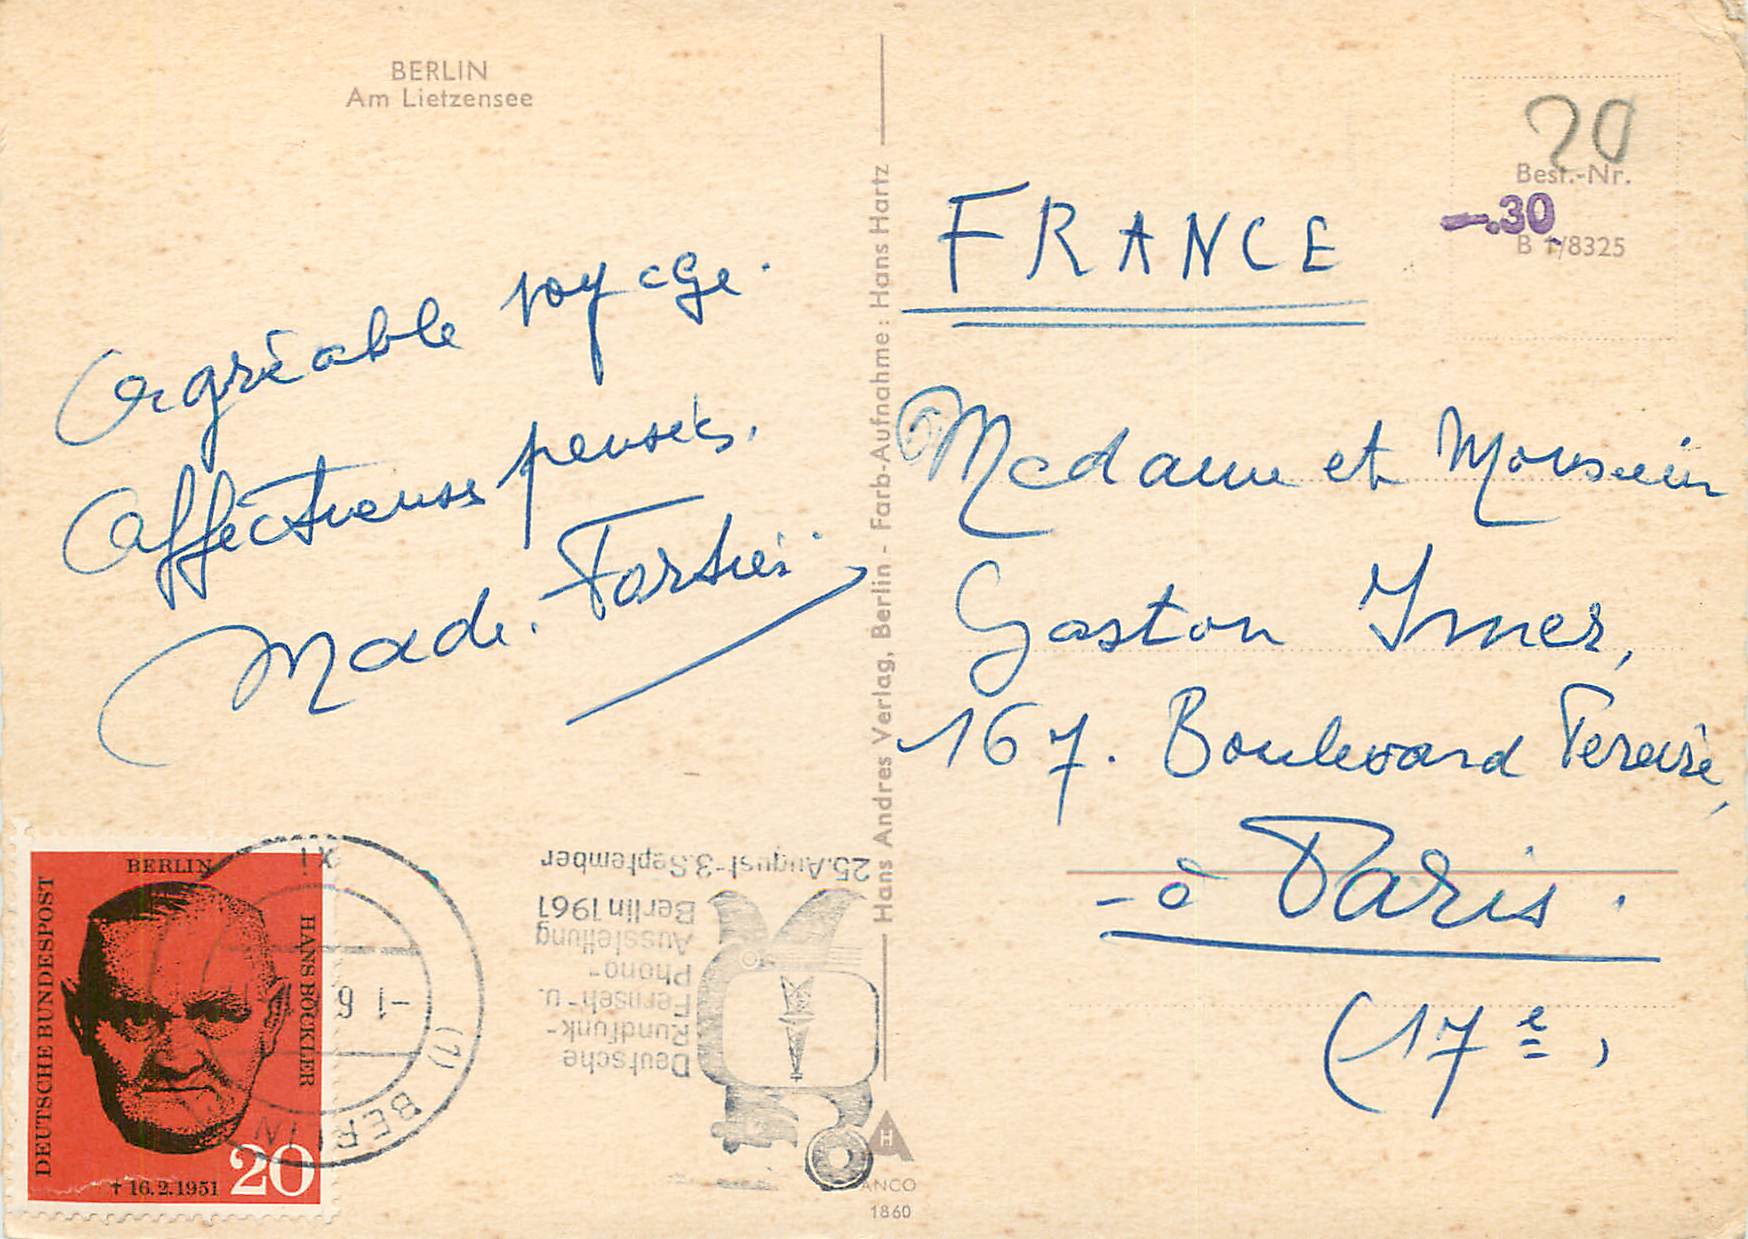 BERLIN
Am Lietzensee
Agréable voyage.
Affectueuses pensées.
Made. Fortier
Hans Andres Verlag, Berlin - Farb-Aufnahme: Hans Hartz
FRANCE
20
Best.-Nr.
-.30
B 1/8325
Madame et Monsieur
Gaston Imer,
167. Boulevard Pereire,
- à Paris.
(17e)
BERLIN
DEUTSCHE BUNDESPOST
HANS BÖCKLER
† 16.2.1951
20
(1) BERLIN
Deutsche
Rundfunk-
Fernseh- u.
Phono-
Ausstellung
Berlin 1961
25.August-3.September
H
1860